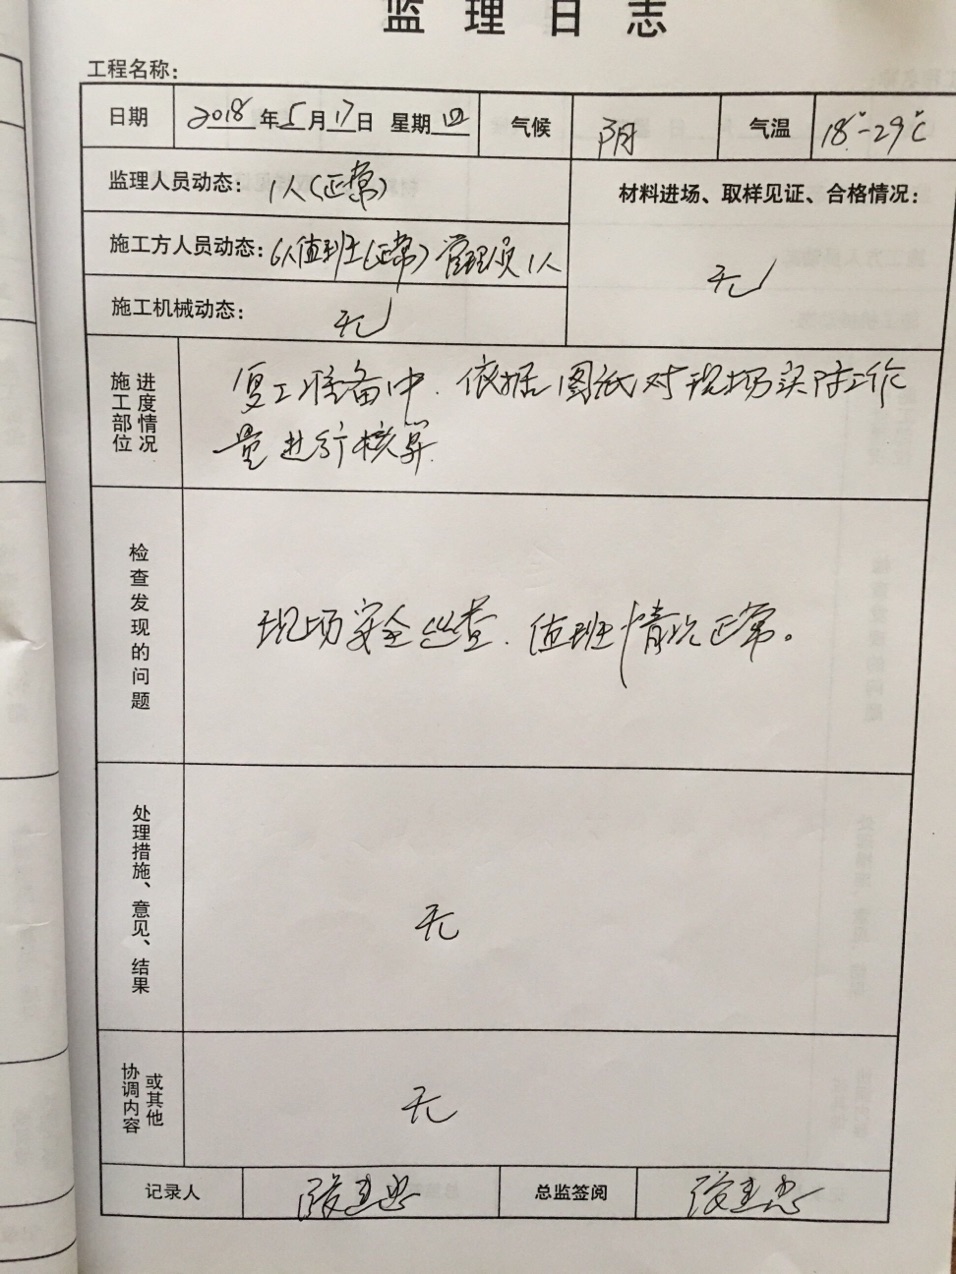 监理日志
工程名称：
日期 2018年5月17日 星期四 气候 阴 气温 18°-29℃
监理人员动态：1人(正常)
材料进场、取样见证、合格情况：
无
施工方人员动态：6人值班(正常) 管理员1人
施工机械动态：无
施工部位进度情况
复工准备中．依据图纸对现场实际工作
量进行核算．
检查发现的问题
现场安全巡查．值班情况正常。
处理措施、意见、结果
无
协调内容或其他
无
记录人 总监签阅